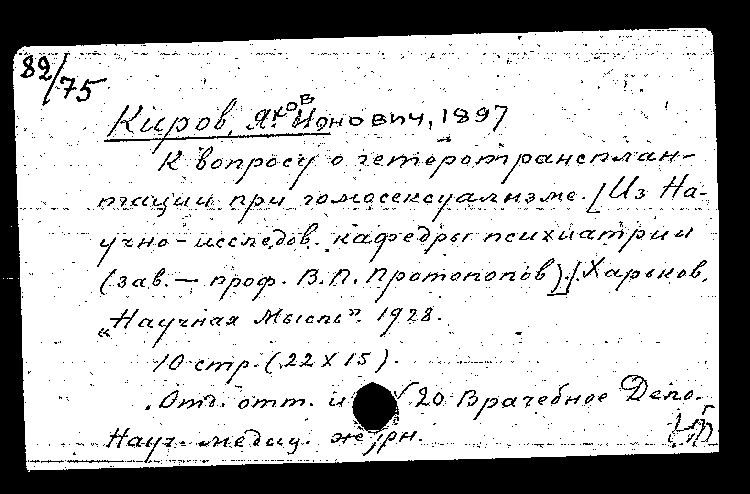 82/75
Киров, Яков Ионович, 1897
К вопросу о гетеротрансплан-
тации при гомосексуализме. [Из На-
учно-исследов. кафедры психиатрии
(зав. — проф. В.П. Протопопов).] Харьков,
„Научная Мысль". 1928.
10 стр. (22 х 15).
Отд. отт. 20 Врачебное Дело.
Науч. медиц. журн.